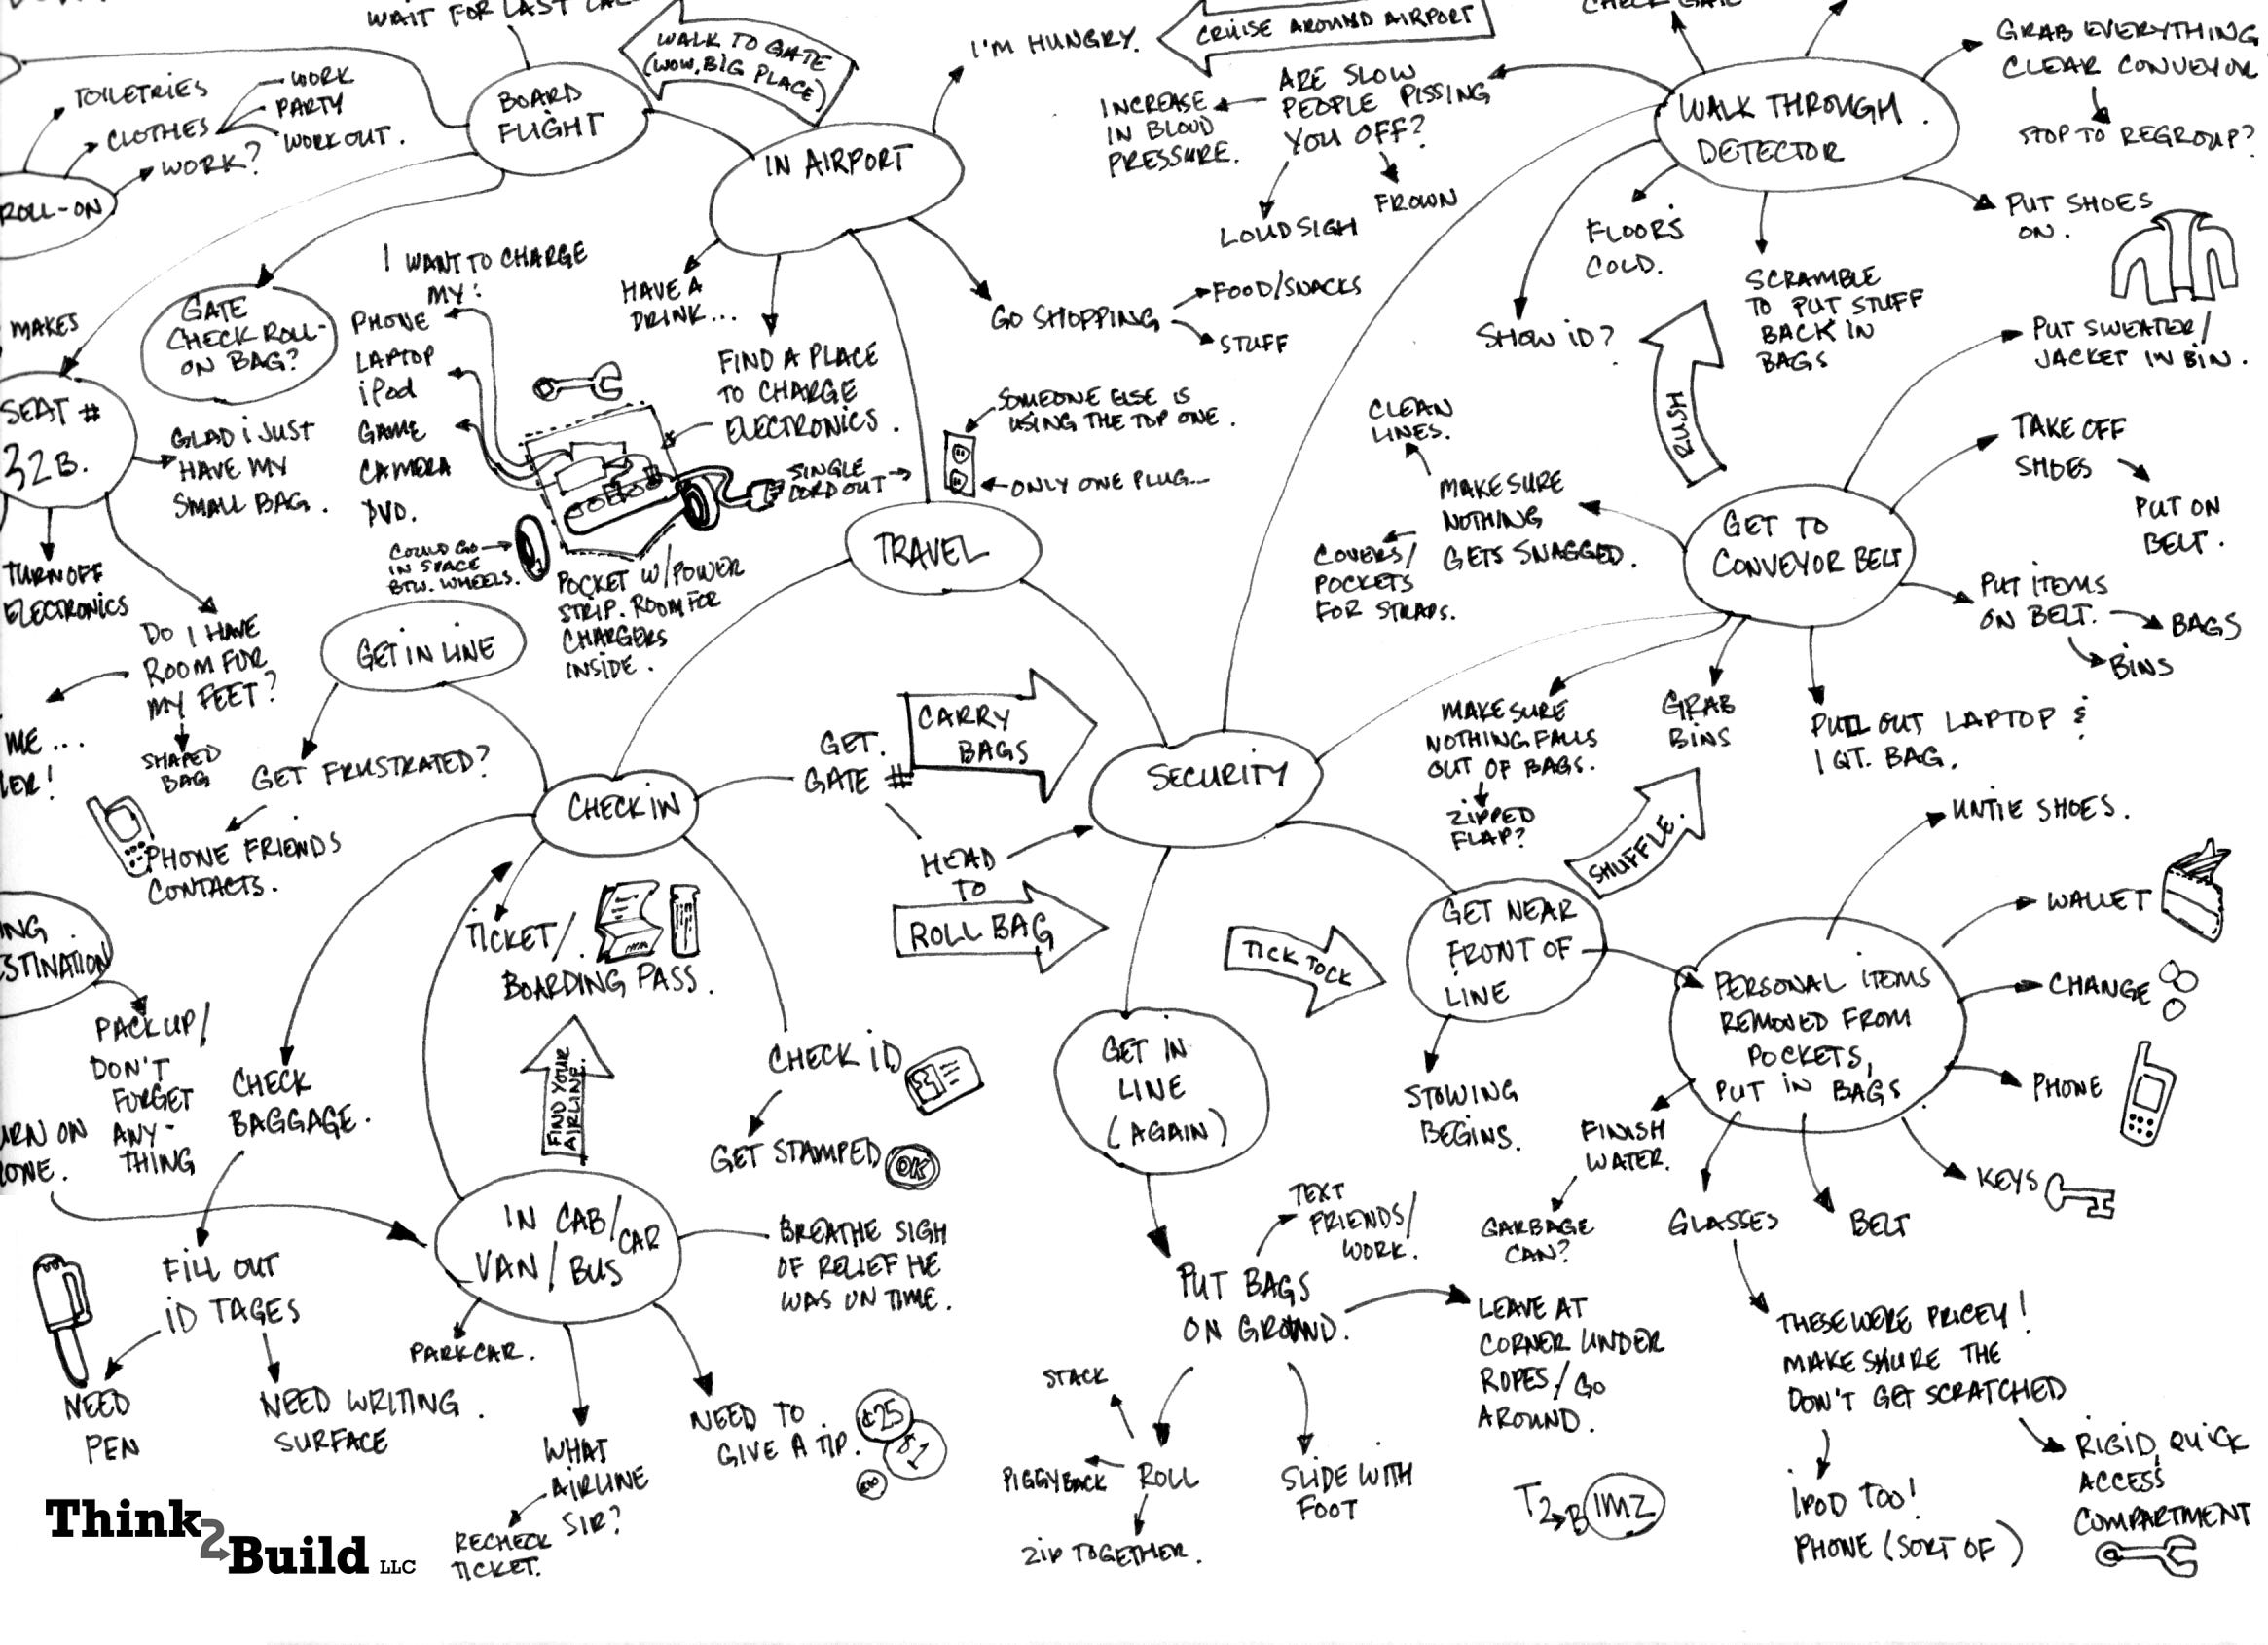 WAIT FOR LAST
WALK TO GATE
(WOW, BIG PLACE)
I'M HUNGRY.
CRUISE AROUND AIRPORT
CHECK GATE
GRAB EVERYTHING
CLEAR CONVEYOR
STOP TO REGROUP?
TOILETRIES
CLOTHES
WORK
PARTY
WORK OUT.
WORK?
ROLL-ON
BOARD
FLIGHT
IN AIRPORT
INCREASE
IN BLOOD
PRESSURE.
ARE SLOW
PEOPLE PISSING
YOU OFF?
LOUD SIGH
FROWN
WALK THROUGH
DETECTOR
FLOORS
COLD.
SHOW iD?
SCRAMBLE
TO PUT STUFF
BACK IN
BAGS
PUT SHOES
ON.
MAKES
GATE
CHECK ROLL-
ON BAG?
I WANT TO CHARGE
MY:
PHONE
LAPTOP
iPod
GAME
CAMERA
DVD.
HAVE A
DRINK...
FIND A PLACE
TO CHARGE
ELECTRONICS.
GO SHOPPING
FOOD/SNACKS
STUFF
SEAT #
32B.
GLAD i JUST
HAVE MY
SMALL BAG.
TURN OFF
ELECTRONICS
DO I HAVE
ROOM FOR
MY FEET?
SHAPED
BAG
ME...
LER!
COULD GO
IN SPACE
BTW. WHEELS.
POCKET W/POWER
STRIP. ROOM FOR
CHARGERS
INSIDE.
SINGLE
CORD OUT
SOMEONE ELSE IS
USING THE TOP ONE.
ONLY ONE PLUG...
TRAVEL
CLEAN
LINES.
MAKE SURE
NOTHING
GETS SNAGGED.
COVERS/
POCKETS
FOR STRAPS.
RUSH
GET TO
CONVEYOR BELT
PUT SWEATER/
JACKET IN BIN.
TAKE OFF
SHOES
PUT ON
BELT.
PUT ITEMS
ON BELT.
BAGS
BINS
MAKE SURE
NOTHING FALLS
OUT OF BAGS.
ZIPPED
FLAP?
GRAB
BINS
PULL OUT LAPTOP &
1 QT. BAG.
GET IN LINE
GET FRUSTRATED?
PHONE FRIENDS
CONTACTS.
CHECK IN
GET.
GATE #
CARRY
BAGS
HEAD
TO
ROLL BAG
SECURITY
TICK TOCK
SHUFFLE.
GET NEAR
FRONT OF
LINE
STOWING
BEGINS.
UNTIE SHOES.
WALLET
CHANGE
PHONE
KEYS
BELT
GLASSES
PERSONAL ITEMS
REMOVED FROM
POCKETS,
PUT IN BAGS
FINISH
WATER.
GARBAGE
CAN?
THESE WERE PRICEY!
MAKE SHURE THE
DON'T GET SCRATCHED
IPOD TOO!
PHONE (SORT OF)
RIGID, QUICK
ACCESS
COMPARTMENT
TICKET/
BOARDING PASS.
FIND YOUR
AIRLINE.
CHECK iD
GET STAMPED
OK
ING
ESTINATION
PACK UP/
DON'T
FORGET
ANY-
THING
URN ON
CHECK
BAGGAGE.
FILL OUT
ID TAGES
NEED
PEN
NEED WRITING
SURFACE
IN CAB/CAR
VAN/BUS
BREATHE SIGH
OF RELIEF HE
WAS ON TIME.
PARK CAR.
WHAT
AIRLINE
SIR?
RECHECK
TICKET.
NEED TO
GIVE A TIP.
¢25
$1
GET IN
LINE
(AGAIN)
PUT BAGS
ON GROUND.
TEXT
FRIENDS/
WORK.
LEAVE AT
CORNER UNDER
ROPES/GO
AROUND.
STACK
PIGGYBACK
ROLL
ZIP TOGETHER.
SLIDE WITH
FOOT
T2B
1MZ
Think2Build LLC